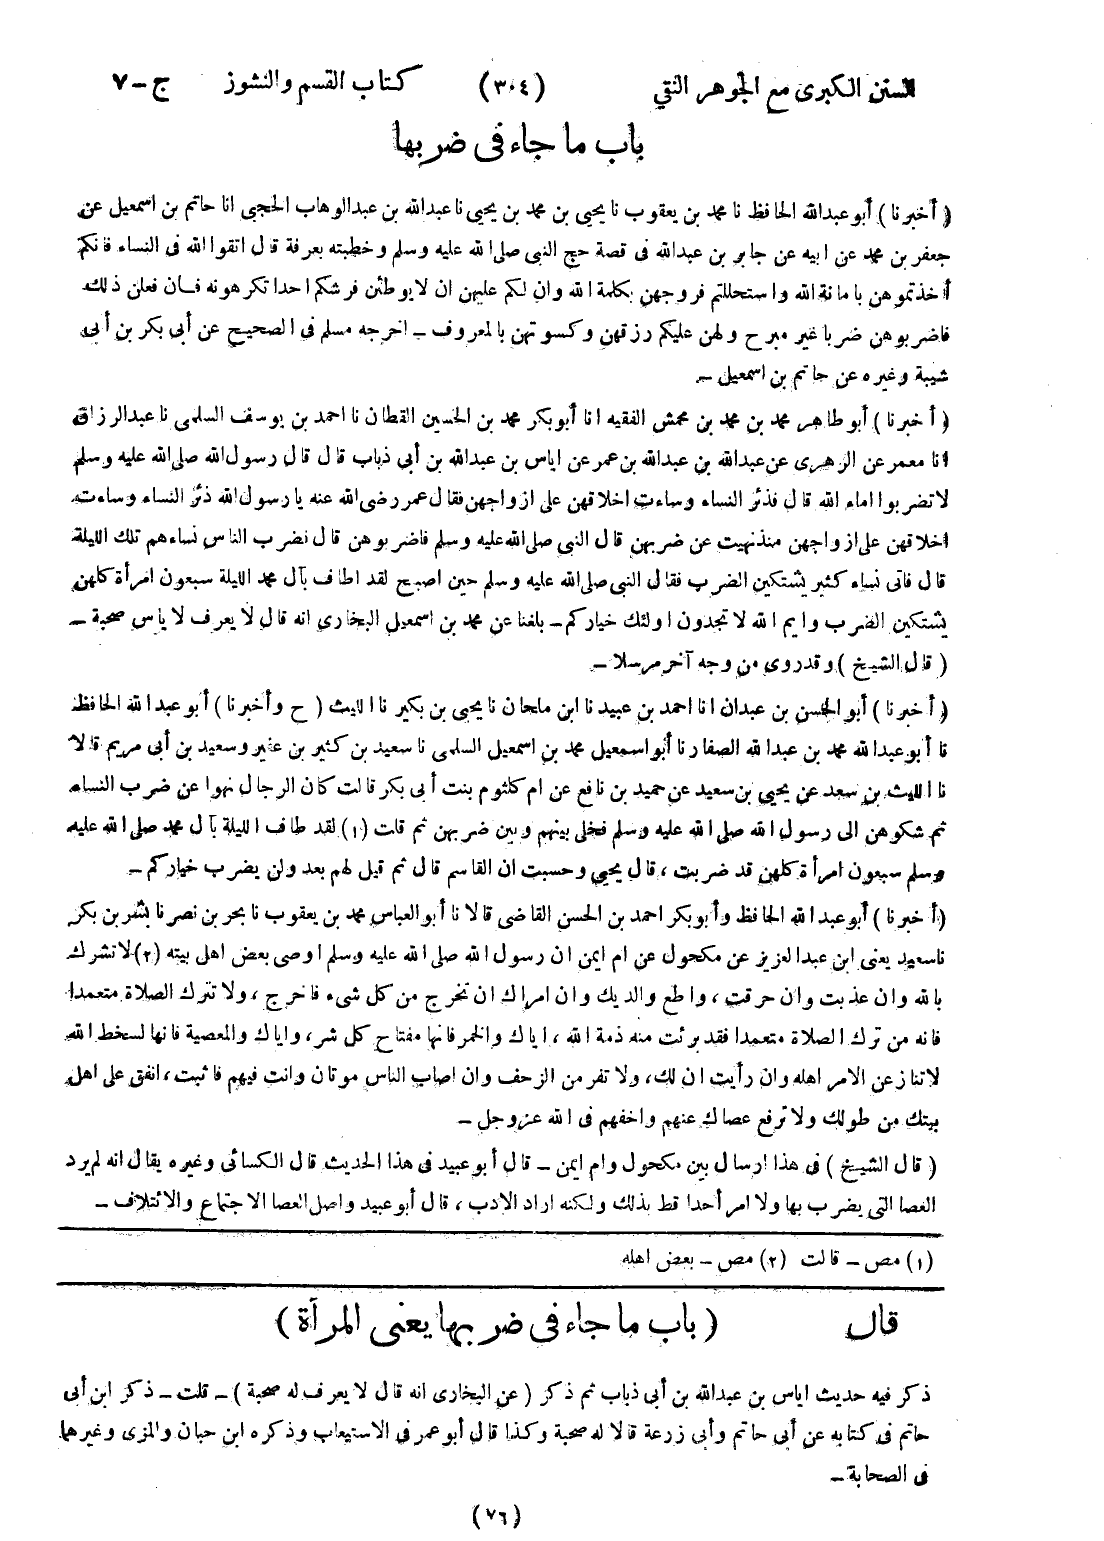 السنن الكبرى مع الجوهر النقي (٣٠٤) كتاب القسم والنشوز ج-٧
باب ما جاء فى ضربها
(أخبرنا) أبو عبدالله الحافظ نا محمد بن يعقوب نا يحيى بن محمد بن يحيى نا عبدالله بن عبدالوهاب الحجبى انا حاتم بن اسمعيل عن
جعفر بن محمد عن ابيه عن جابر بن عبدالله فى قصة حج النبى صلى الله عليه وسلم وخطبته بعرفة قال اتقوا الله فى النساء فانكم
أخذتموهن بامانة الله واستحللتم فروجهن بكلمة الله وان لكم عليهن ان لا يوطئن فرشكم احدا تكرهونه فان فعلن ذلك
فاضربوهن ضربا غير مبرح ولهن عليكم رزقهن وكسوتهن بالمعروف ـ اخرجه مسلم فى الصحيح عن أبى بكر بن أبى
شيبة وغيره عن حاتم بن اسمعيل ـ
(أخبرنا) أبو طاهر محمد بن محمد بن محمش الفقيه انا أبو بكر محمد بن الحسين القطان نا احمد بن يوسف السلمى نا عبدالرزاق
انا معمر عن الزهرى عن عبدالله بن عبدالله بن عمر عن اياس بن عبدالله بن أبى ذباب قال قال رسول الله صلى الله عليه وسلم
لا تضربوا اماء الله قال فذئر النساء وساءت اخلاقهن على ازواجهن فقال عمر رضى الله عنه يا رسول الله ذئر النساء وساءت
اخلاقهن على ازواجهن منذ نهيت عن ضربهن قال النبى صلى الله عليه وسلم فاضربوهن قال نضرب الناس نساءهم تلك الليلة
قال فاتى نساء كثير يشتكين الضرب فقال النبى صلى الله عليه وسلم حين اصبح لقد اطاف بآل محمد الليلة سبعون امرأة كلهن
يشتكين الضرب وايم الله لا تجدون اولئك خياركم ـ بلغنا عن محمد بن اسمعيل البخارى انه قال لا يعرف لاياس صحبة ـ
(قال الشيخ) وقد روى من وجه آخر مرسلا ـ
(أخبرنا) أبو الحسن بن عبدان انا احمد بن عبيد نا ابن ملحان نا يحيى بن بكير نا الليث (ح وأخبرنا) أبو عبدالله الحافظ
نا أبو عبدالله محمد بن عبدالله الصفار نا أبو اسمعيل محمد بن اسمعيل السلمى نا سعيد بن كثير بن عفير وسعيد بن أبى مريم قالا
نا الليث بن سعد عن يحيى بن سعيد عن حميد بن نافع عن ام كلثوم بنت أبى بكر قالت كان الرجال نهوا عن ضرب النساء
ثم شكوهن الى رسول الله صلى الله عليه وسلم فخلى بينهم وبين ضربهن ثم قلت (١) لقد طاف الليلة بآل محمد صلى الله عليه
وسلم سبعون امرأة كلهن قد ضربت ، قال يحيى وحسبت ان القاسم قال ثم قيل لهم بعد ولن يضرب خياركم ـ
(أخبرنا) أبو عبدالله الحافظ وأبو بكر احمد بن الحسن القاضى قالا نا أبو العباس محمد بن يعقوب نا بحر بن نصر نا بشر بن بكر
نا سعيد يعنى ابن عبدالعزيز عن مكحول عن ام ايمن ان رسول الله صلى الله عليه وسلم اوصى بعض اهل بيته (٢) لا تشرك
بالله وان عذبت وان حرقت ، واطع والديك وان امراك ان تخرج من كل شىء فاخرج ، ولا تترك الصلاة متعمدا
فانه من ترك الصلاة متعمدا فقد برئت منه ذمة الله ، اياك والخمر فانها مفتاح كل شر ، واياك والمعصية فانها لسخط الله
لا تنازعن الامر اهله وان رأيت ان لك ، ولا تفر من الزحف وان اصاب الناس موتان وانت فيهم فاثبت ، انفق على اهل
بيتك من طولك ولا ترفع عصاك عنهم واخفهم فى الله عز وجل ـ
(قال الشيخ) فى هذا ارسال بين مكحول وام ايمن ـ قال أبو عبيد فى هذا الحديث قال الكسائى وغيره يقال انه لم يرد
العصا التى يضرب بها ولا امر أحدا قط بذلك ولكنه اراد الادب ، قال أبو عبيد واصل العصا الاجتماع والائتلاف ـ
(١) مص ـ قالت (٢) مص ـ بعض اهله
قال (باب ما جاء فى ضربها يعنى المرأة)
ذكر فيه حديث اياس بن عبدالله بن أبى ذباب ثم ذكر (عن البخارى انه قال لا يعرف له صحبة) ـ قلت ـ ذكر ابن أبى
حاتم فى كتابه عن أبى حاتم وأبى زرعة قالا له صحبة وكذا قال أبو عمر فى الاستيعاب وذكره ابن حبان والمزى وغيرهما
فى الصحابة ـ
(٧٦)